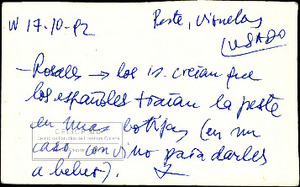 W 17-10-92
Peste, Viruelas
USADO
-Rosales → los is. creían que
los españoles traían la peste
en unas botijas (en un
caso con vino para darles
a beber).